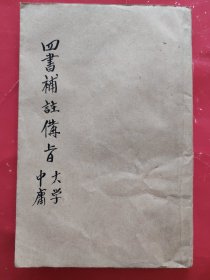 四書補註備旨
大学
中庸